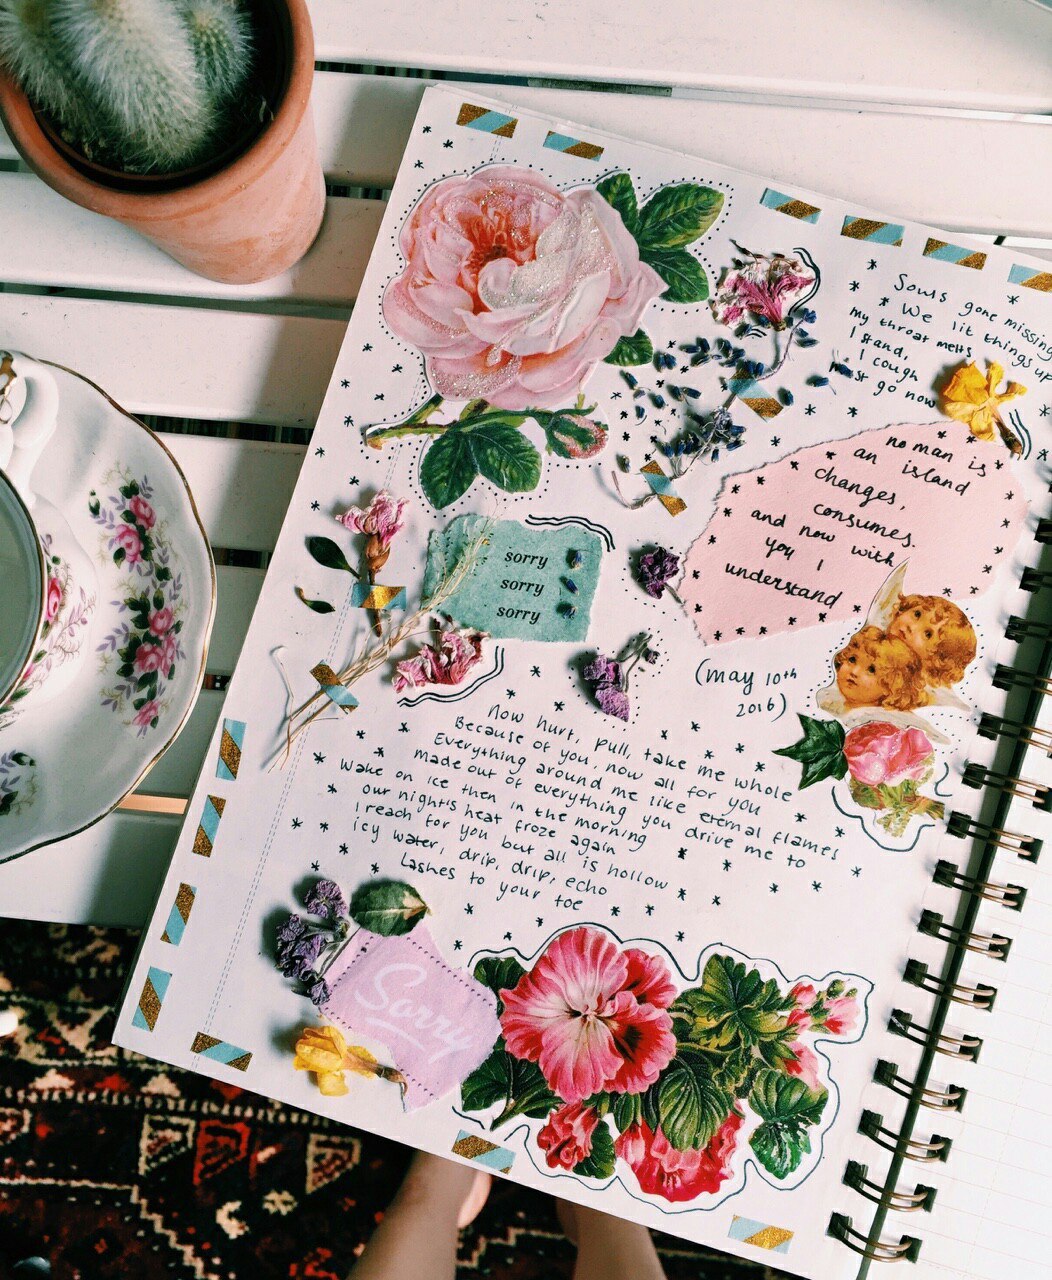 Souls gone missing
We lit things up
my throat melts
I stand,
I cough
must go now
no man is
an island
changes,
consumes.
and now with
you I
understand
sorry
sorry
sorry
(may 10th
2016)
Now hurt, pull, take me whole
Because of you, now all for you
Everything around me like eternal flames
made out of everything you drive me to
Wake on ice then in the morning
our night's heat froze again
I reach for you but all is hollow
icy water, drip, drip, echo
Lashes to your toe
Sorry